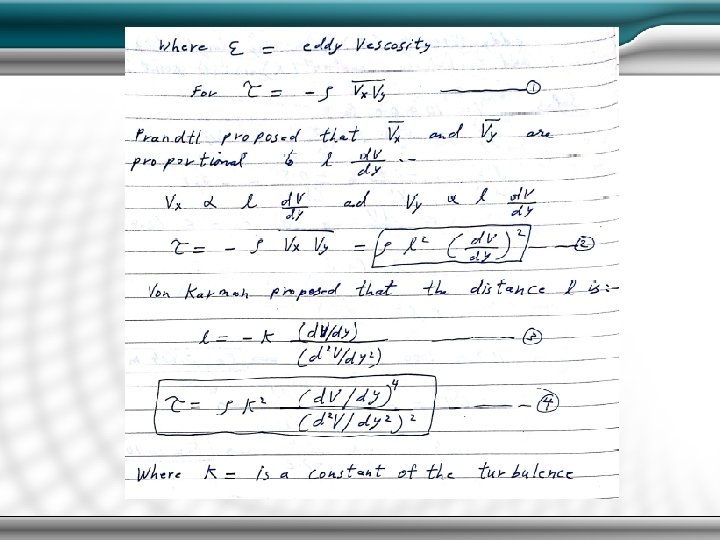 Where ε = eddy Vescosity
For τ = - ρ \overline{Vx Vy} ——— ①
Prandtl proposed that \overline{Vx} and \overline{Vy} are
proportional to l dV/dy .-
Vx α l dV/dy ad Vy α l dV/dy
τ = - ρ \overline{Vx Vy} = ρ l² (dV/dy)² ——②
Von Karman proposed that the distance l is:-
l = - K (dV/dy)/(d²V/dy²) ------- ③
τ = ρ K² (dV/dy)⁴/(d²V/dy²)² ------- ④
Where K = is a constant of the turbulence